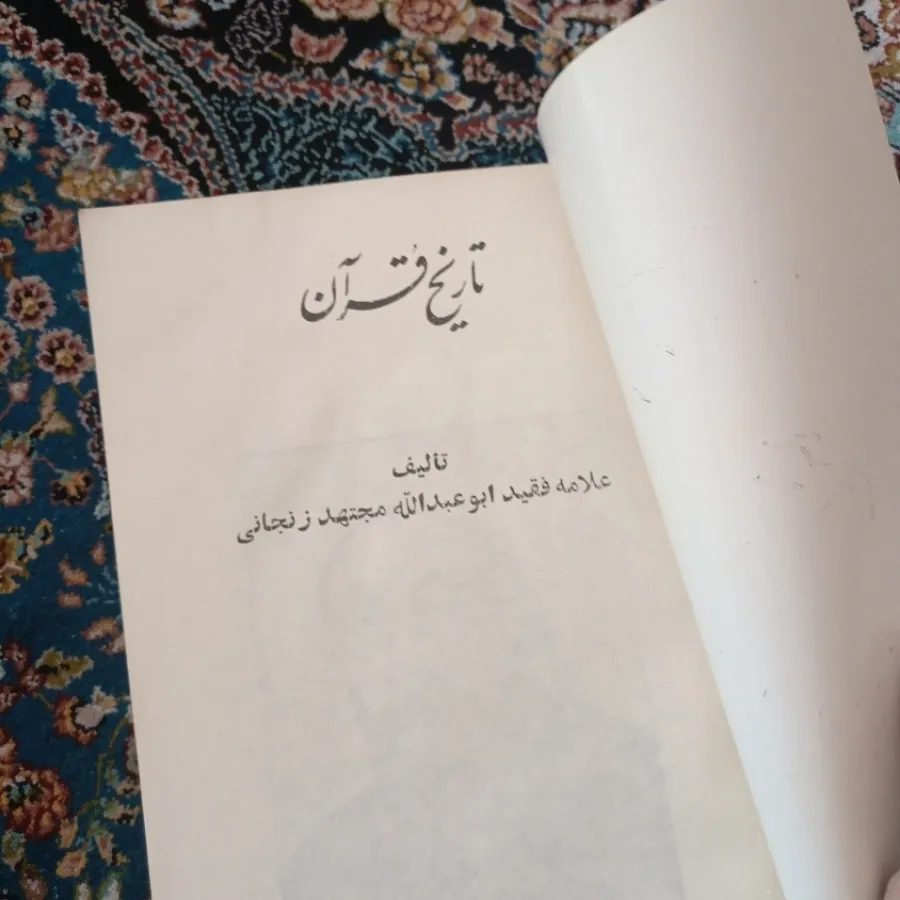 تاریخ قُرآن
تألیف
علامه فقید ابوعبدالله مجتهد زنجانی